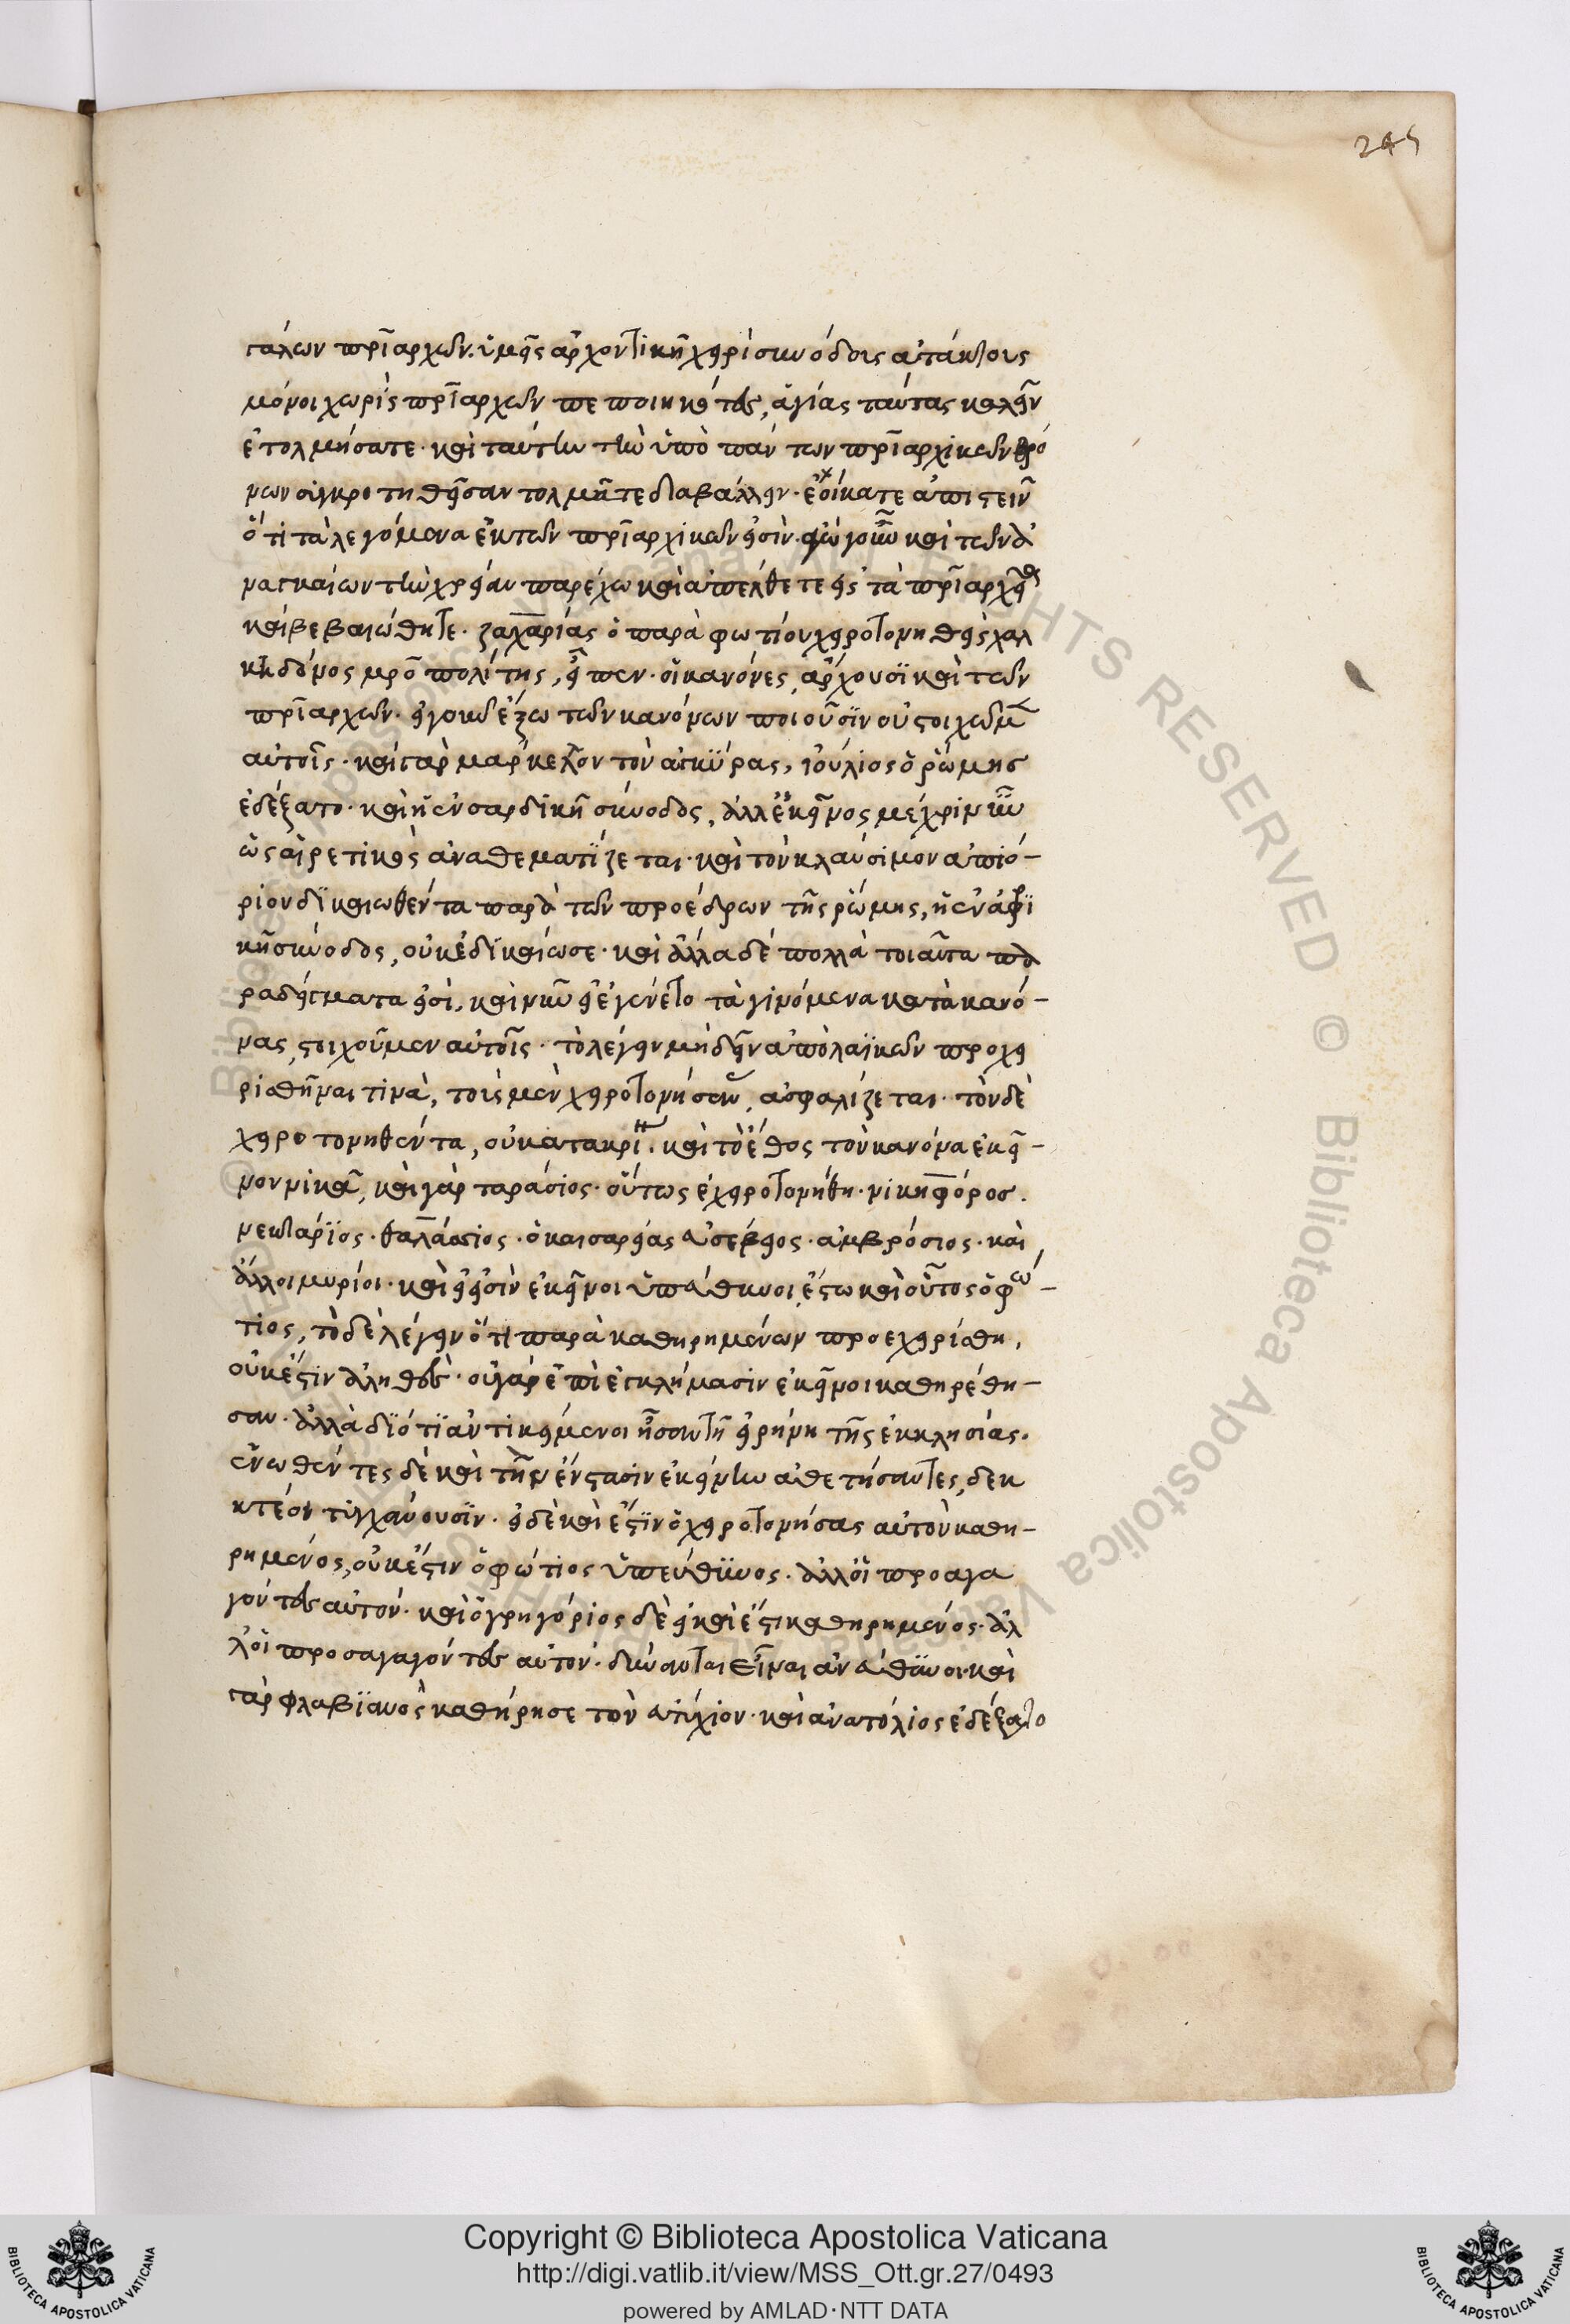 245
γάλων πρῖαρχῶν. ὑμεῖς ἀρχοντικῆ χειρὶ συνόδοις ἀτάκτοις
μόνοι χωρὶς πρῖαρχῶν πεποιηκότες, ἁγίας ταύτας καλεῖν
ἐτολμήσατε· καὶ ταύτην τὴν ὑπὸ πάντων πρῖαρχικῶν θρό
νων συγκροτηθεῖσαν τολμᾶτε διαβάλλειν· ἐοίκατε ἀπιστεῖν
ὅτι τὰ λεγόμενα ἐκ τῶν πρῖαρχικῶν εἰσὶν. ἐγὼ γοῦν καὶ τῶν ἀ
ναγκαίων τὴν χρείαν παρέχω καὶ ἀπέλθετε εἰς τὰ πρῖαρχεῖα
καὶ βεβαιώθητε. ζαχαρίας ὁ παρὰ φωτίου χειροτονηθεὶς χαλ
κηδόνος μρο πολίτης, εἶπεν· οἱ κανόνες ἄρχουσι καὶ τῶν
πρῖαρχῶν. εἰ γοῦν ἔξω τῶν κανόνων ποιοῦσιν οὐ στοιχῶμ
αὐτοῖς· καὶ γὰρ μάρκελλον τὸν ἀγκύρας, ἰούλιος ὁ ῥώμης
ἐδέξατο· καὶ ἡ ἐν σαρδικῆ σύνοδος, ἀλλ' ἐκεῖνος μέχρι νῦν
ὡς αἱρετικὸς ἀναθεματίζεται· καὶ τὸν κλαύσιμον ἀπιό-
ριον δικαιωθέντα παρὰ τῶν προέδρων τῆς ῥώμης, ἡ ἐν ἀφρι
κῆ σύνοδος, οὐκ ἐδικαίωσε· καὶ ἄλλα δὲ πολλὰ τοιαῦτα πα
ραδείγματα εἰσὶ, καὶ νῦν εἰ ἐγένετο τὰ γινόμενα κατὰ κανό-
νας, στοιχοῦμεν αὐτοῖς· τὸ λέγειν μὴ δεῖν ἀπὸ λαϊκῶν προχει
ρισθῆναι τινὰ, τοὺς μὲν χειροτονήσαντ ἀσφαλίζεται· τὸν δὲ
χειροτονηθέντα, οὐ κατακρίν. καὶ τὸ ἔθος τὸν κανόνα ἐκεῖ-
νον νικᾶ, καὶ γὰρ ταράσιος· οὕτως ἐχειροτονήθη· νικηφόρος.
νεκτάριος· θαλάσσιος· ὁ καισαρείας εὐσέβειος· ἀμβρόσιος· καὶ
ἄλλοι μυρίοι· καὶ εἰ εἰσὶν ἐκεῖνοι ὑπεύθυνοι, ἔστω καὶ οὗτος ὁ φώ-
τιος, τὸ δὲ λέγειν ὅτι παρὰ καθηρημένων προεχειρίσθη,
οὐκ ἔστιν ἀληθὲς· οὐ γὰρ ἐπὶ ἐγκλήμασιν ἐκεῖνοι καθηρέθη-
σαν· ἀλλὰ διότι ἀντικείμενοι ἦσαν τῆ εἰρήνη τῆς ἐκκλησίας.
ἑνωθέντες δὲ καὶ τὴν ἔνστασιν ἐκείνην ἀθετήσαντες, δεκ
κτέοι τυγχάνουσιν· εἰ δὲ καὶ ἔστιν ὁ χειροτονήσας αὐτὸν καθη-
ρημένος, οὐκ ἔστιν ὁ φώτιος ὑπεύθυνος· ἀλλ' οἱ προαγα
γόντες αὐτόν· καὶ ὁ γρηγόριος δὲ εἰ καὶ ἔστι καθηρημένος· ἀλ
λ' οἱ προσαγαγόντες αὐτόν· δύνανται εἶναι ἀνεύθυνοι· καὶ
γὰρ φλαβιανὸς καθήρησε τὸν εὐτύχιον· καὶ ἀνατόλιος ἐδέξατο
© Biblioteca Apostolica Vaticana
Copyright © Biblioteca Apostolica Vaticana
http://digi.vatlib.it/view/MSS_Ott.gr.27/0493
powered by AMLAD·NTT DATA
BIBLIOTECA APOSTOLICA VATICANA
BIBLIOTECA APOSTOLICA VATICANA